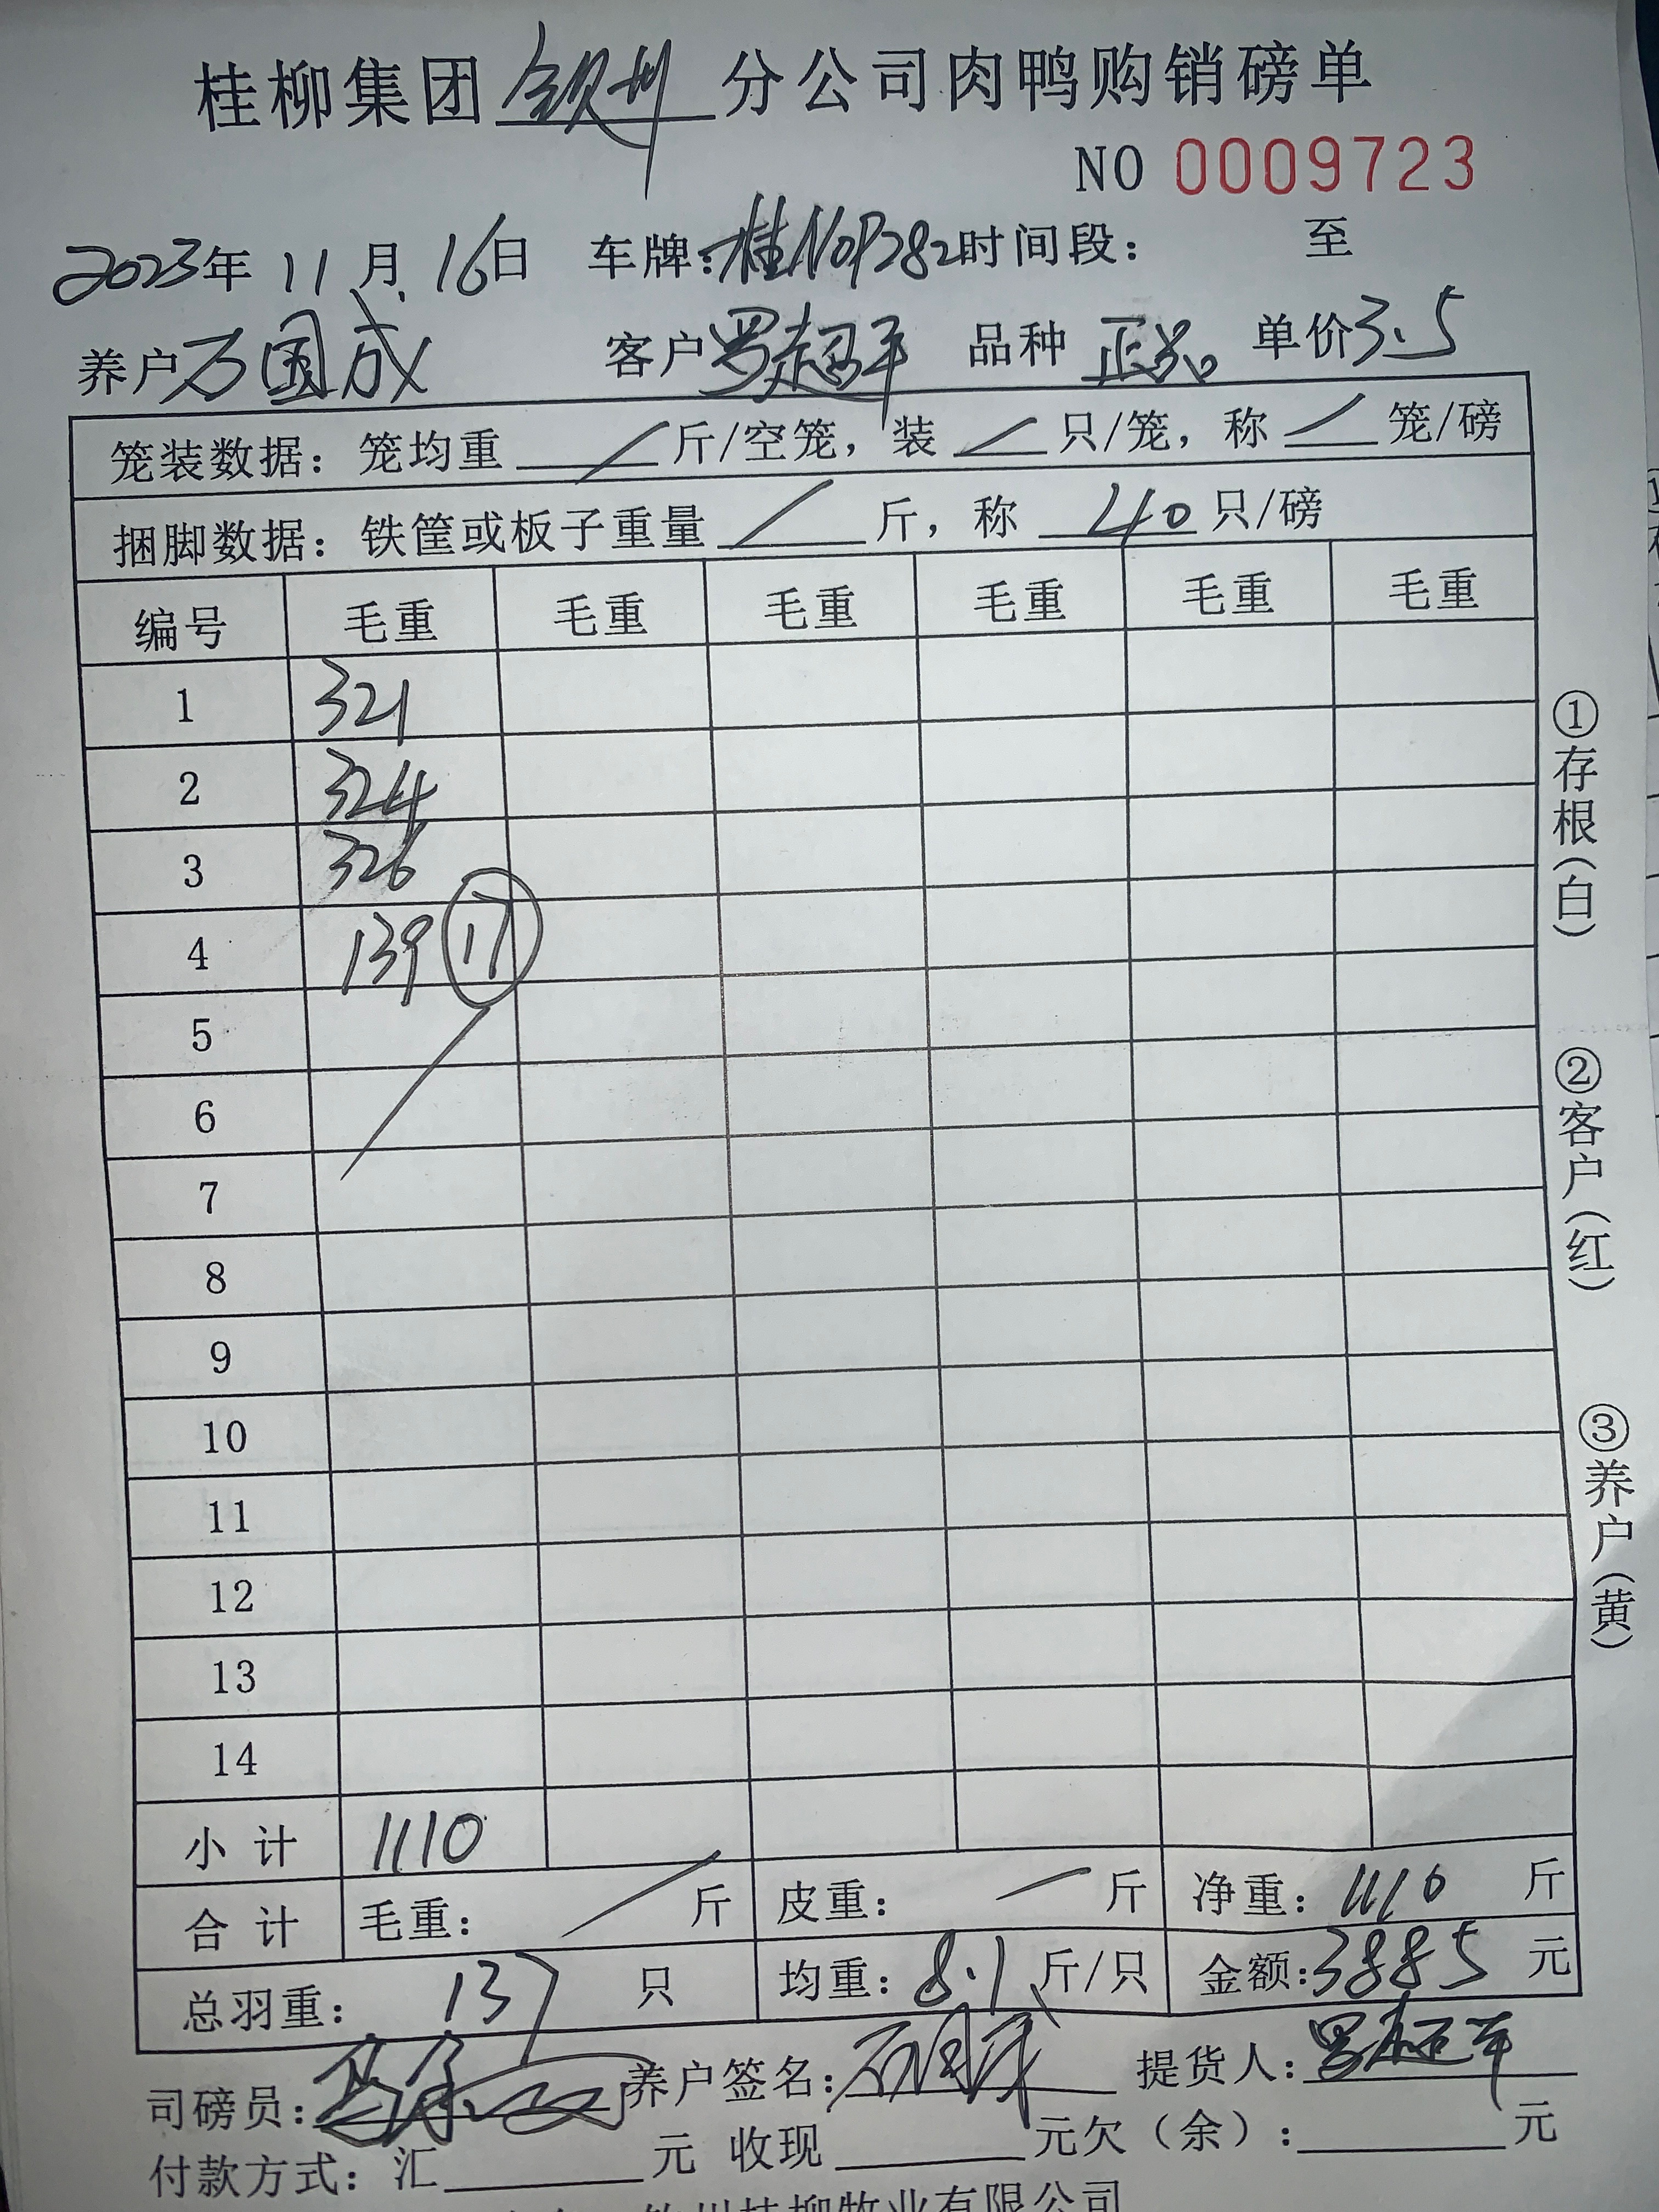 桂柳集团 钦州 分公司肉鸭购销磅单
NO 0009723
2023年 11 月 16日 车牌:桂N0P282 时间段: 至
养户 万国成 客户 罗超平 品种 正品 单价 3.5
笼装数据:笼均重 / 斤/空笼,装 / 只/笼,称 / 笼/磅
捆脚数据:铁筐或板子重量 / 斤,称 40 只/磅
编号 毛重 毛重 毛重 毛重 毛重 毛重
1 321
2 324
3 326
4 139 17
5
6
7
8
9
10
11
12
13
14
小计 1110
合计 毛重: / 斤 皮重: / 斤 净重: 1110 斤
总羽重: 137 只 均重: 8.1 斤/只 金额: 3885 元
司磅员: 养户签名: 万国成 提货人: 罗超平
付款方式:汇 元 收现 元欠(余): 元
钦州桂柳牧业有限公司
①存根(白)
②客户(红)
③养户(黄)